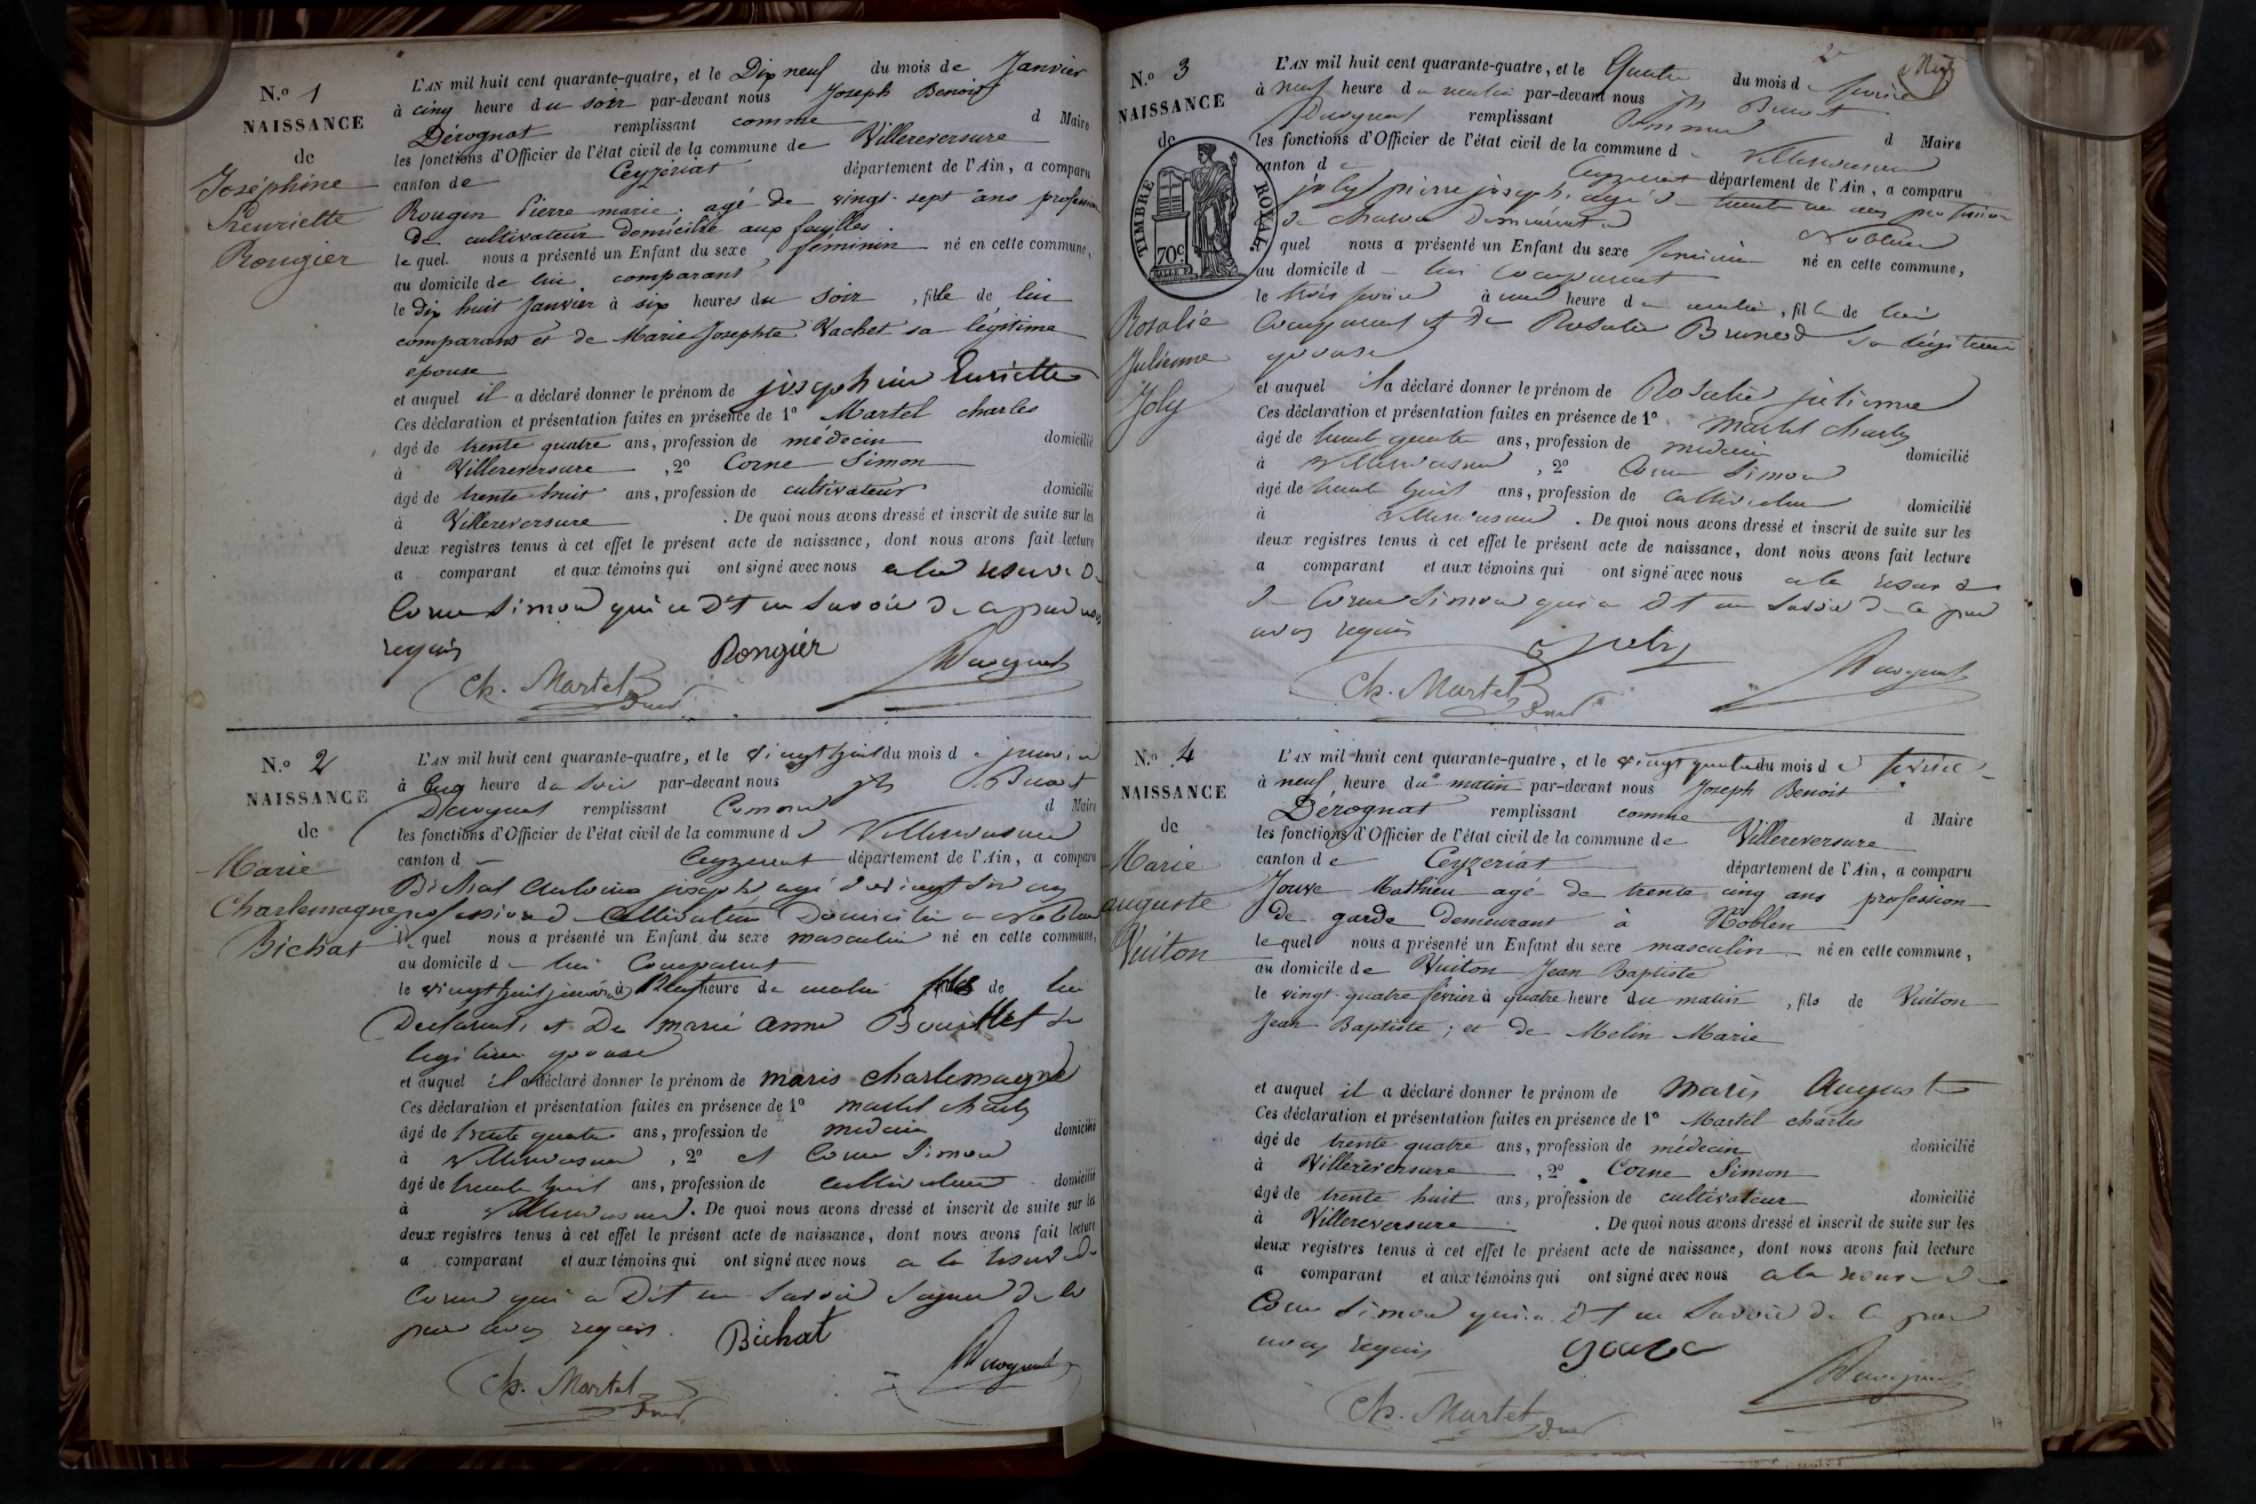 N.o 1
NAISSANCE
de
Joséphine
Henriette
Rongier
L'AN mil huit cent quarante-quatre, et le Dix neuf du mois de Janvier
à cinq heure du soir par-devant nous Joseph Benoist
Dérognat remplissant comme d Maire
les fonctions d'Officier de l'état civil de la commune de Villereversure
canton de Ceyzériat département de l'Ain, a comparu
Rougier Pierre marie, agé de vingt-sept ans profession
de cultivateur domicilié aux feuilles
lequel nous a présenté un Enfant du sexe feminin né en cette commune,
au domicile de lui comparant
le dix huit Janvier à six heures du soir, fille de lui
comparant et de Marie Josephte Vachet sa légitime
épouse
et auquel il a déclaré donner le prénom de joséphine henriette
Ces déclaration et présentation faites en présence de 1o Martel charles
âgé de trente quatre ans, profession de médecin domicilié
à Villereversure, 2o Corne Simon
âgé de trente huit ans, profession de cultivateur domicilié
à Villereversure. De quoi nous avons dressé et inscrit de suite sur les
deux registres tenus à cet effet le présent acte de naissance, dont nous avons fait lecture
a comparant et aux témoins qui ont signé avec nous a la reserve de
Corne Simon qui a dit ne savoir de ce par nous
requis
Rongier
Ch. Martel
N.o 2
NAISSANCE
de
Marie
Charlemagne
Bichat
L'AN mil huit cent quarante-quatre, et le vingt huit du mois de janvier
à cinq heure du soir par-devant nous jh Benoist
Derognat remplissant comme d Maire
les fonctions d'Officier de l'état civil de la commune de Villereversure
canton de Ceyzeriat département de l'Ain, a comparu
Bichat Antoine joseph agé de vingt six ans
profession de cultivateur Domicilié a Noblen
lequel nous a présenté un Enfant du sexe masculin né en cette commune,
au domicile de lui Comparant
le vingt huit janvier à heure du matin fils de lui
Declarant, et De marie anne Bouillet sa
legitime epouse
et auquel il a déclaré donner le prénom de marie charlemagne
Ces déclaration et présentation faites en présence de 1o martel charles
âgé de trente quatre ans, profession de medecin domicilié
à Villereversure, 2o et Corne Simon
âgé de trente huit ans, profession de cultivateur domicilié
à Villereversure. De quoi nous avons dressé et inscrit de suite sur les
deux registres tenus à cet effet le présent acte de naissance, dont nous avons fait lecture
a comparant et aux témoins qui ont signé avec nous a la reserve de
Corne qui a Dit ne savoir signer de ce
par nous requis.
Bichat
Ch. Martel
2e
N.o 3
NAISSANCE
de
TIMBRE ROYAL
70c
Rosalie
Julienne
Joly
L'AN mil huit cent quarante-quatre, et le Quatre du mois de fevrier
à neuf heure du matin par-devant nous jh Benoist
Derognat remplissant Comme d Maire
les fonctions d'Officier de l'état civil de la commune d Villereversure
canton de Ceyzeriat département de l'Ain, a comparu
joly pierre joseph, agé de trente un ans profession
de charron Demeurant a Noblen
quel nous a présenté un Enfant du sexe feminin né en cette commune,
au domicile de lui comparant
le trois fevrier à une heure du matin, fille de lui
Comparant et de Rosalie Brunet sa légitime
epouse
et auquel il a déclaré donner le prénom de Rosalie julienne
Ces déclaration et présentation faites en présence de 1o Martel Charles
âgé de trente quatre ans, profession de medecin domicilié
à Villereversure, 2o Corne Simon
âgé de trente huit ans, profession de Cultivateur domicilié
à Villereversure. De quoi nous avons dressé et inscrit de suite sur les
deux registres tenus à cet effet le présent acte de naissance, dont nous avons fait lecture
a comparant et aux témoins qui ont signé avec nous a la reserve
de Corne Simon qui a Dit ne savoir de ce par
nous requis
Joly
Ch. Martel
N.o 4
NAISSANCE
de
Marie
auguste
Vuiton
L'AN mil huit cent quarante-quatre, et le vingt quatre du mois de fevrier
à neuf heure du matin par-devant nous Joseph Benoit
Dérognat remplissant comme d Maire
les fonctions d'Officier de l'état civil de la commune de Villereversure
canton de Ceyzeriat département de l'Ain, a comparu
Jouve Mathieu agé de trente cinq ans profession
de garde demeurant à Noblen
lequel nous a présenté un Enfant du sexe masculin né en cette commune,
au domicile de Vuiton Jean Baptiste
le vingt-quatre février à quatre heure du matin, fils de Vuiton
Jean Baptiste; et de Melin Marie
et auquel il a déclaré donner le prénom de marie Auguste
Ces déclaration et présentation faites en présence de 1o Martel charles
âgé de trente quatre ans, profession de médecin domicilié
à Villereversure, 2o Corne Simon
âgé de trente huit ans, profession de cultivateur domicilié
à Villereversure. De quoi nous avons dressé et inscrit de suite sur les
deux registres tenus à cet effet le présent acte de naissance, dont nous avons fait lecture
a comparant et aux témoins qui ont signé avec nous a la reserve de
Corne Simon qui a Dit ne savoir de ce par
nous requis
Ch. Martel